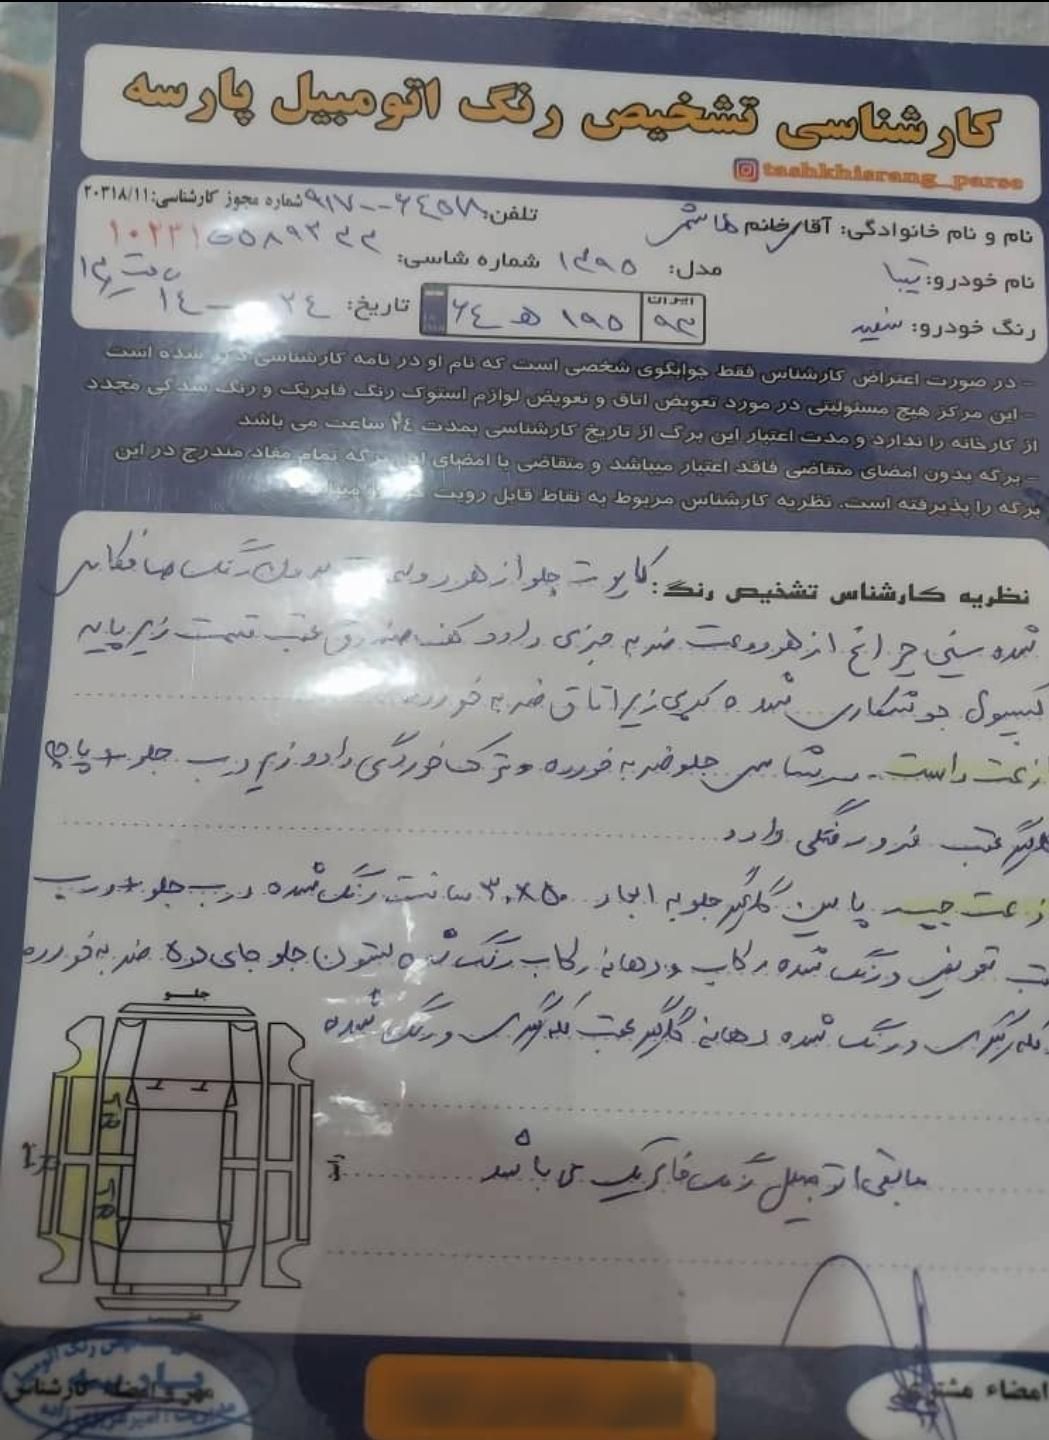 کارشناسی تشخیص رنگ اتومبیل پارسه
tashkhisrang_parse
نام و نام خانوادگی: آقای/خانم هاشمی تلفن: شماره مجوز کارشناسی: ۲۰۳۱۸/۱۱
نام خودرو: تیبا مدل: ۱۳۹۵ شماره شاسی: ۱۰۲۳۱
رنگ خودرو: سفید ایران ۹۳ ۱۹۵ ه ۶۴ تاریخ:
- در صورت اعتراض کارشناس فقط جوابگوی شخصی است که نام او در نامه کارشناسی شده است
- این مرکز هیچ مسئولیتی در مورد تعویض اتاق و تعویض لوازم استوک رنگ فابریک و رنگ شدگی مجدد
از کارخانه را ندارد و مدت اعتبار این برگ از تاریخ کارشناسی بمدت ۲۴ ساعت می باشد
- برگه بدون امضای متقاضی فاقد اعتبار میباشد و متقاضی با امضای این برگه تمام مفاد مندرج در این
برگه را پذیرفته است. نظریه کارشناس مربوط به نقاط قابل رویت
نظریه کارشناس تشخیص رنگ: کاپوت جلو از هر دو سمت بدون رنگ صافکاری
شده سینی چراغ از هر دو سمت ضربه جزی دارد کف صندوق عقب قسمت زیر پایه
کپسول جوشکاری شده زیر اتاق ضربه خورده
سمت راست - سرشاسی جلو ضربه خورده و ترک خوردگی دارد زیر درب جلو + پایین
گلگیر عقب فرورفتگی دارد
سمت چپ پایین گلگیر جلو به ابعاد ۳۰×۵۰ سانت رنگ شده درب جلو + درب
تعویض و رنگ شده رکاب و دهانه رکاب رنگ شده ستون جلو جای دوه ضربه خورده
لکه گیری و رنگ شده دهانه گلگیر عقب لکه گیری و رنگ شده
مابقی اتومبیل رنگ فابریک می باشد
جلو
عقب
امضاء مشتری
مهر و امضاء کارشناس